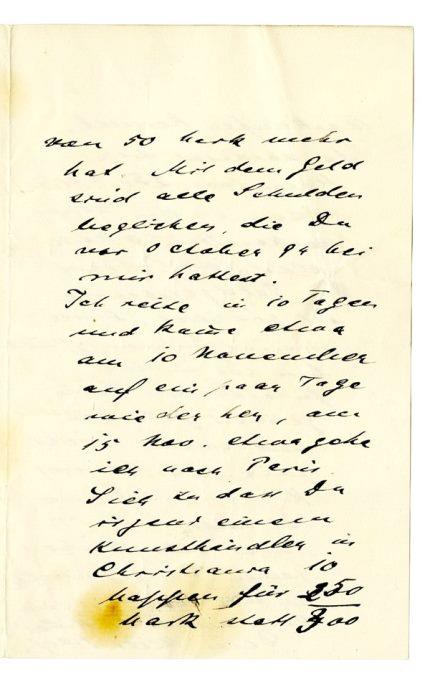 von 50 Mark mehr
hat. Mit dem Geld
sind alle Schulden
beglichen, die Du
vor October 94 bei
mir hattest.
Ich reise in 10 Tagen
und komme etwa
am 10 November
auf ein paar Tage
wieder her, am
15 Nov. etwa gehe
ich nach Paris.
Sieh zu dass Du
irgend einem
Kunsthändler in
Christiania 10
Mappen für 250
Mark statt 300